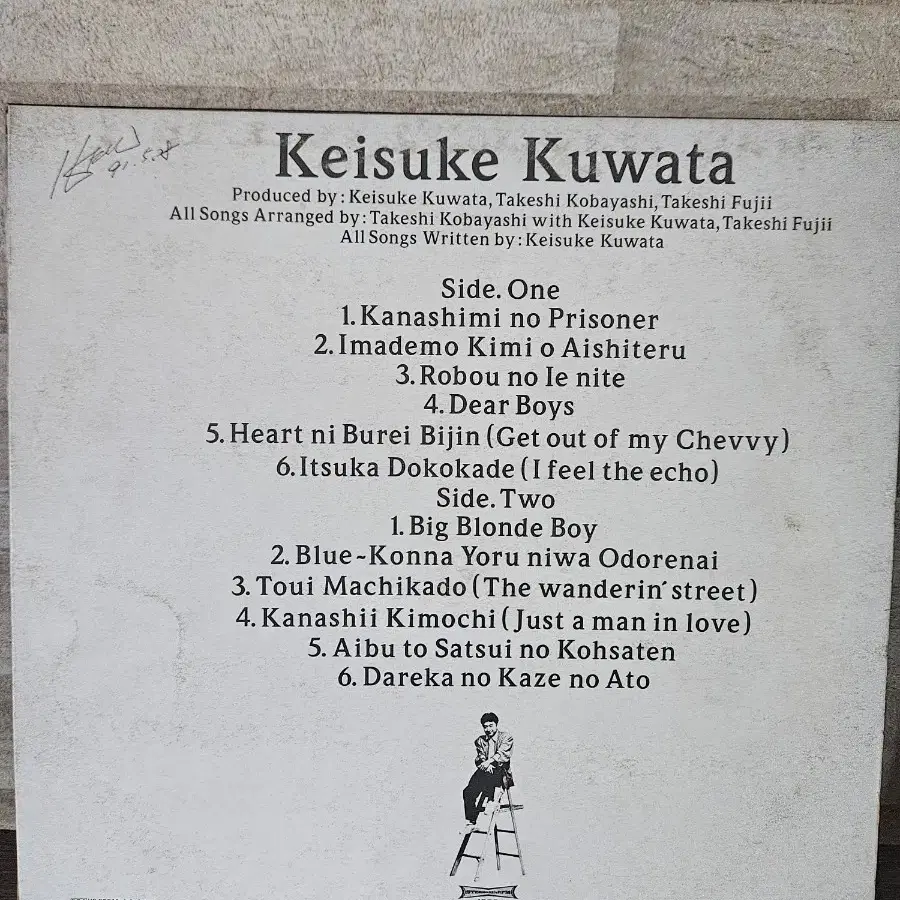 91.5.28
Keisuke Kuwata
Produced by: Keisuke Kuwata, Takeshi Kobayashi, Takeshi Fujii
All Songs Arranged by: Takeshi Kobayashi with Keisuke Kuwata, Takeshi Fujii
All Songs Written by: Keisuke Kuwata
Side. One
1. Kanashimi no Prisoner
2. Imademo Kimi o Aishiteru
3. Robou no Ie nite
4. Dear Boys
5. Heart ni Burei Bijin (Get out of my Chevvy)
6. Itsuka Dokokade (I feel the echo)
Side. Two
1. Big Blonde Boy
2. Blue~Konna Yoru niwa Odorenai
3. Toui Machikado (The wanderin' street)
4. Kanashii Kimochi (Just a man in love)
5. Aibu to Satsui no Kohsaten
6. Dareka no Kaze no Ato